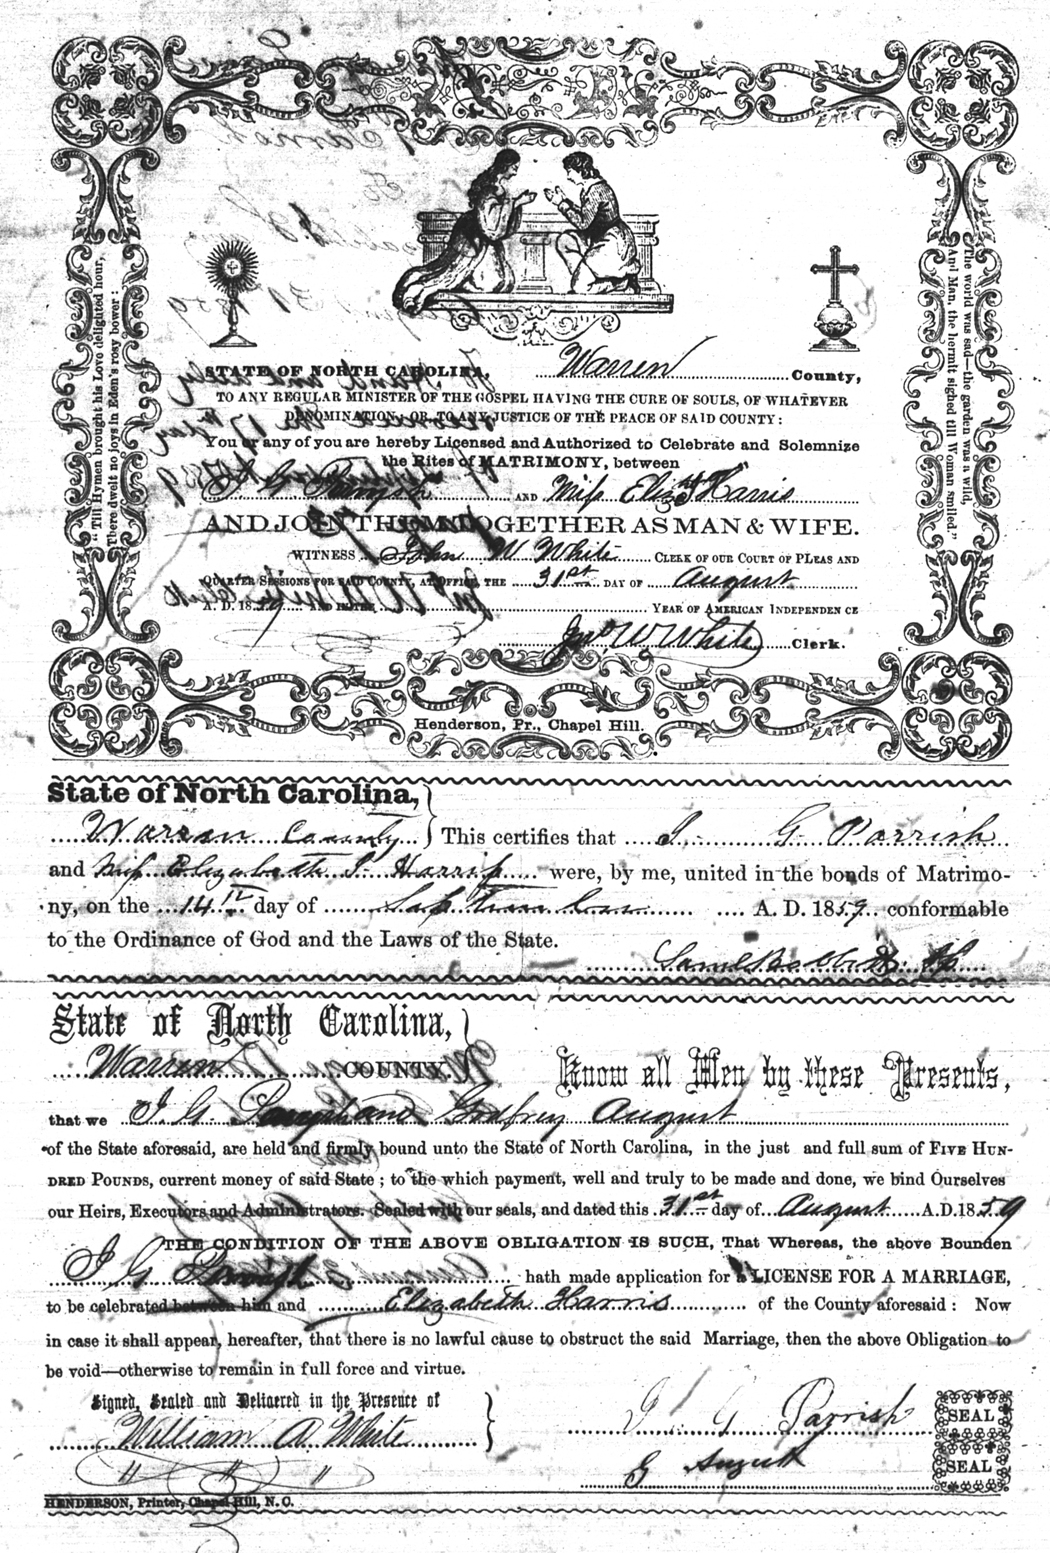 "Till Hymen brought his Love delighted hour,
There dwelt no joys in Eden's rosy bower:
The world was sad—the garden was a wild,
And Man, the hermit sighed till Woman smiled."
STATE OF NORTH CAROLINA, Warren County,
TO ANY REGULAR MINISTER OF THE GOSPEL HAVING THE CURE OF SOULS, OF WHATEVER
DENOMINATION; OR, TO ANY JUSTICE OF THE PEACE OF SAID COUNTY:
You or any of you are hereby Licensed and Authorized to Celebrate and Solemnize
the Rites of MATRIMONY, between
G Parrish AND Miss Elizth Harris
AND JOIN THEM TOGETHER AS MAN & WIFE.
WITNESS John W White CLERK OF OUR COURT OF PLEAS AND
QUARTER SESSIONS FOR SAID COUNTY, AT OFFICE THE 31st DAY OF August
A. D. 1859 AND IN THE YEAR OF AMERICAN INDEPENDENCE
Jno W White Clerk.
Henderson, Pr., Chapel Hill.
State of North Carolina,
Warren County } This certifies that G Parrish
and Miss Elizabeth Harriss were, by me, united in the bonds of Matrimo-
ny, on the 14th day of September A. D. 1859 conformable
to the Ordinance of God and the Laws of the State.
State of North Carolina,
Warren COUNTY. } Know all Men by these Presents,
that we G Parrish and Godfrey August
of the State aforesaid, are held and firmly bound unto the State of North Carolina, in the just and full sum of FIVE HUN-
DRED POUNDS, current money of said State; to the which payment, well and truly to be made and done, we bind Ourselves
our Heirs, Executors and Administrators. Sealed with our seals, and dated this 31st day of August A.D. 1859
THE CONDITION OF THE ABOVE OBLIGATION IS SUCH, That Whereas, the above Bounden
G Parrish hath made application for a LICENSE FOR A MARRIAGE,
to be celebrated between him and Elizabeth Harris of the County aforesaid: Now
in case it shall appear, hereafter, that there is no lawful cause to obstruct the said Marriage, then the above Obligation to
be void—otherwise to remain in full force and virtue.
Signed, Sealed and Delivered in the Presence of
William A White } G Parrish SEAL
" " " G August SEAL
HENDERSON, Printer, Chapel Hill, N. C.